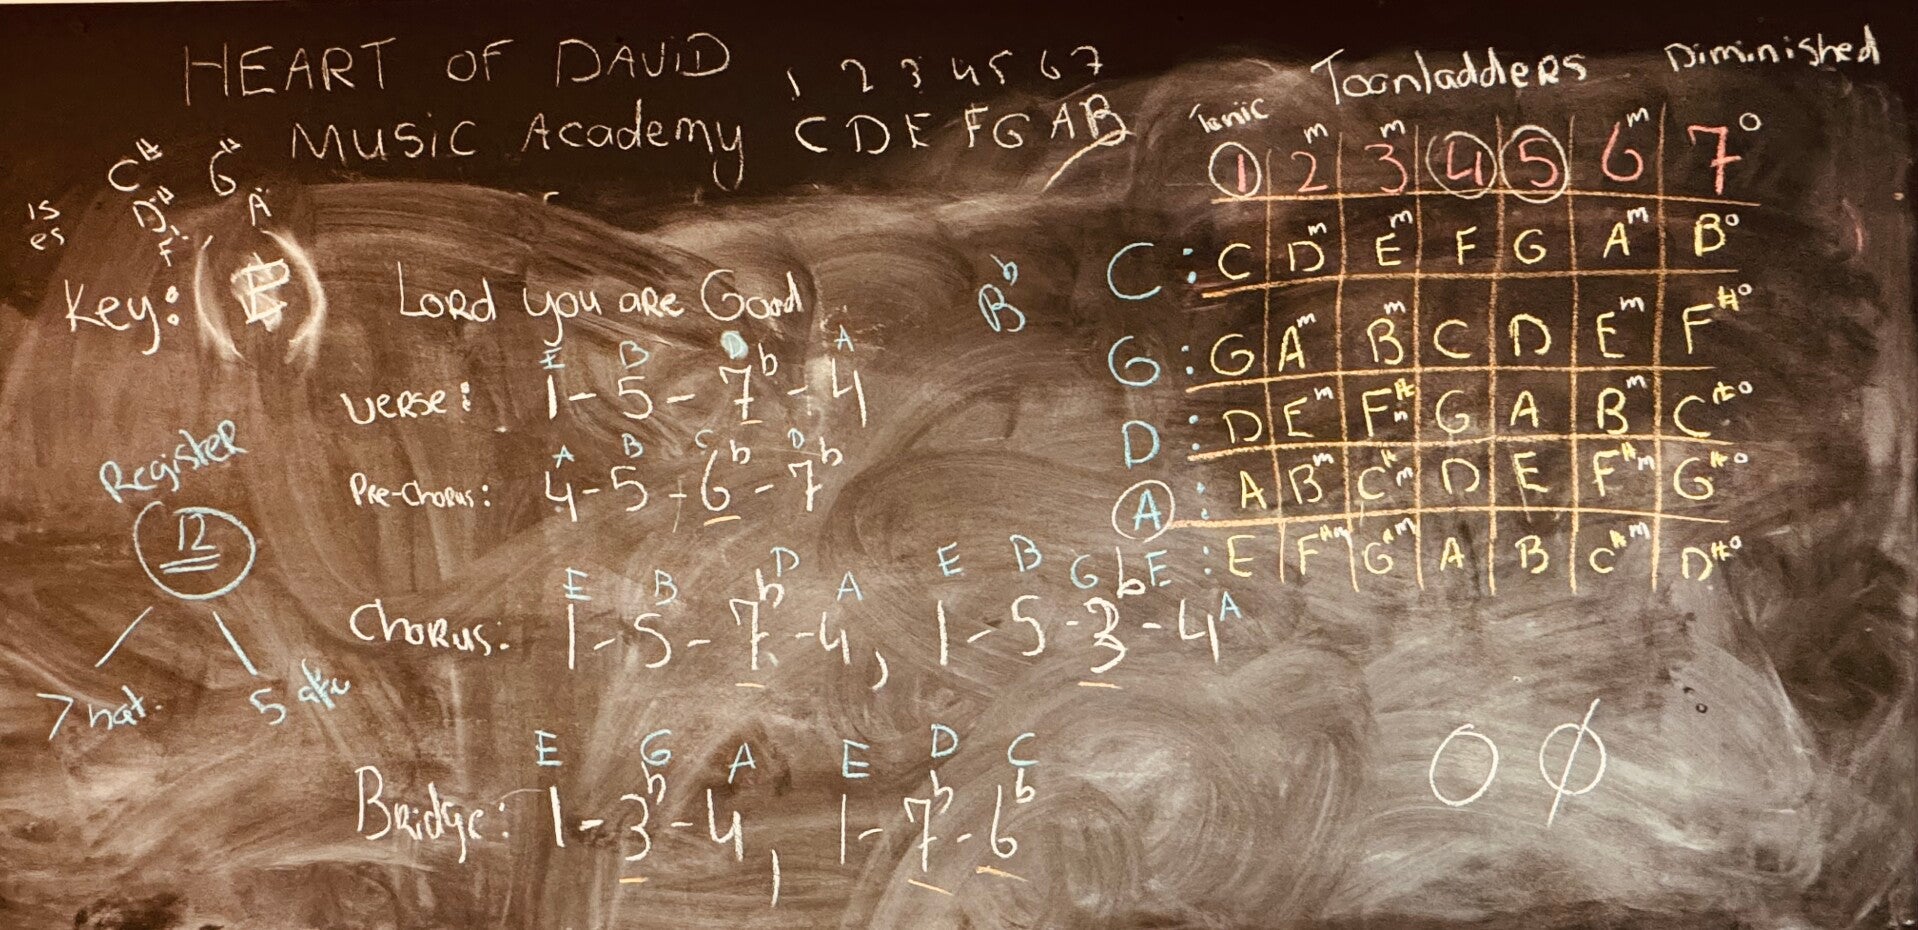 HEART OF DAVID
MUSIC Academy
1 2 3 4 5 6 7
C D E F G A B
Toonladders
Diminished
1 2m 3m 4 5 6m 7°
C: C Dm Em F G Am B°
G: G Am Bm C D Em F#°
D: D Em F#m G A Bm C#°
A: A Bm C#m D E F#m G#°
E: E F#m G#m A B C#m D#°
C# G#
D# A
F
is
es
Key: (E)
Lord you are Good
Bb
E B D A
Verse: 1 - 5 - 7b - 4
A B C D
Pre-Chorus: 4 - 5 - 6b - 7b
E B D A E B G A
Chorus: 1 - 5 - 7b - 4, 1 - 5 - 3b - 4
E G A E D C
Bridge: 1 - 3b - 4, 1 - 7b - 6b
Register
12
7 nat.
5
O Ø